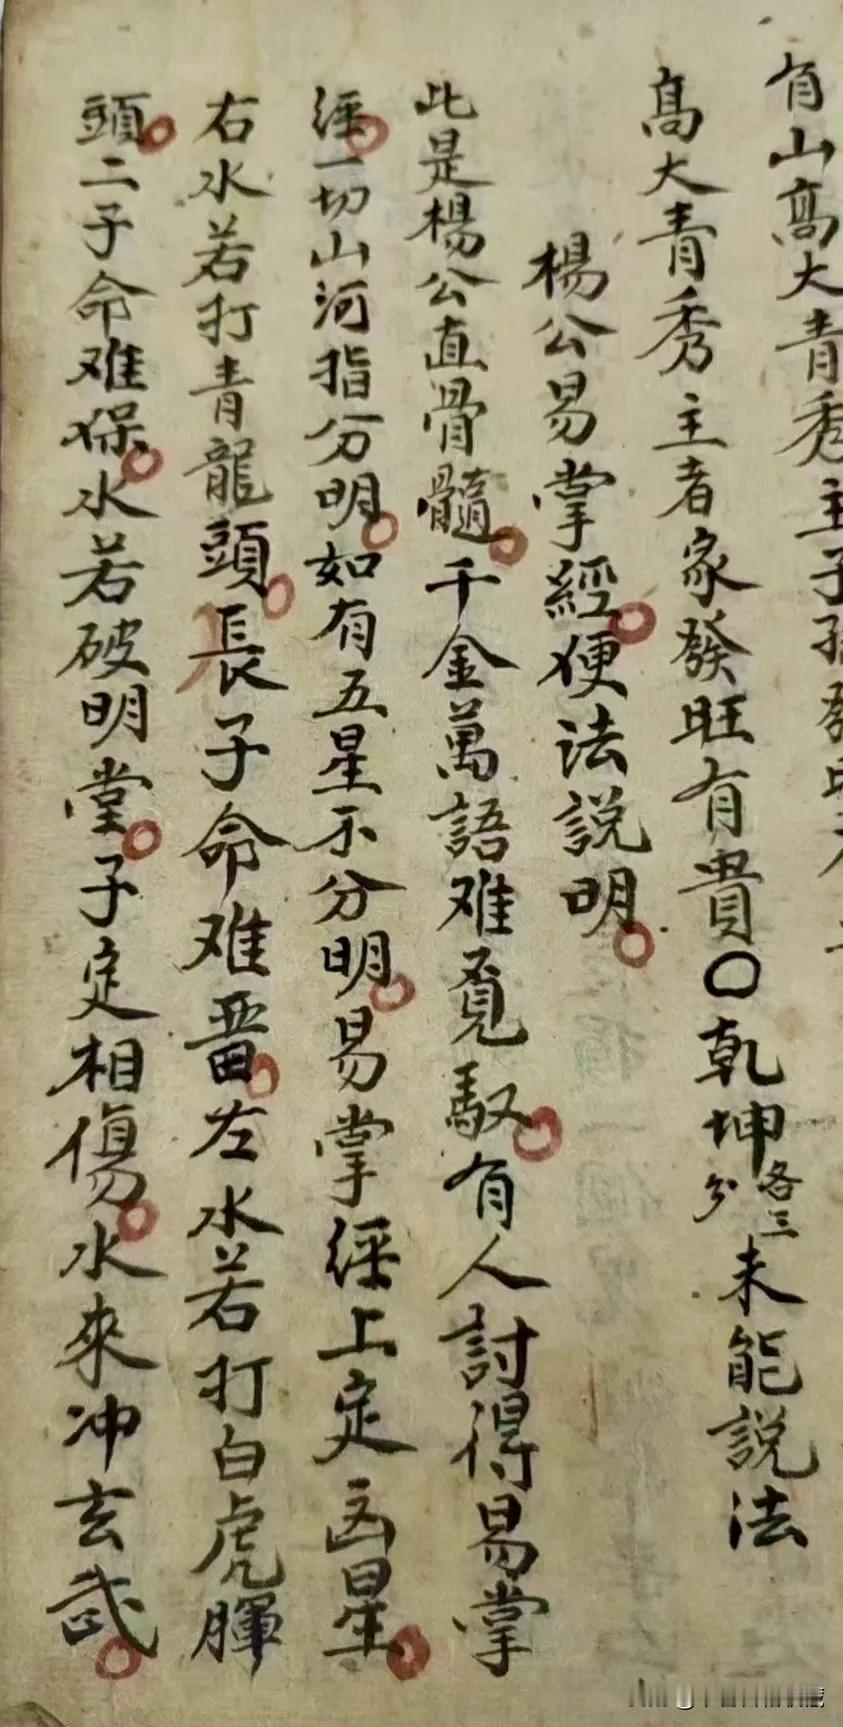 有山高大青秀主子孫發旺
高大青秀主者家發旺有貴〇乾坤各三分未能説法
楊公易掌經便法説明
此是楊公直骨髓千金萬語难覔馭有人討得易掌
経一切山河指分明如有五星不分明易掌経上定凶星
右水若打青龍頭長子命难畱左水若打白虎腪
頭二子命难保水若破明堂子定相傷水來冲玄武